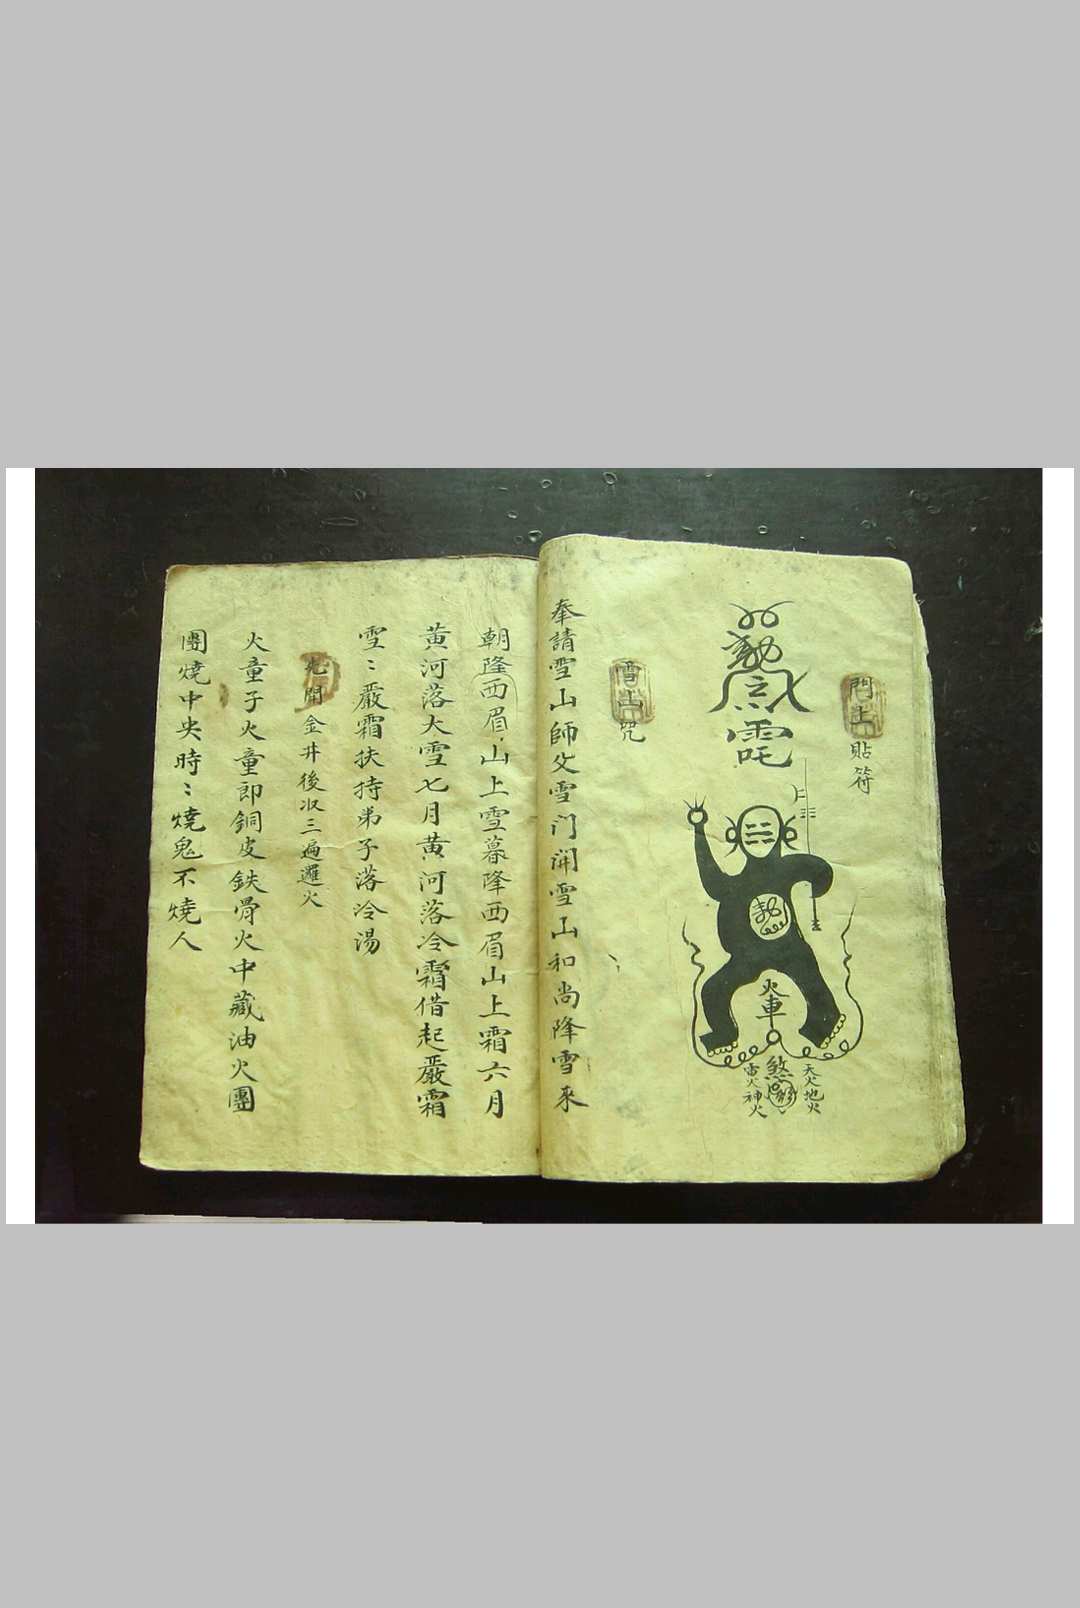 門上貼符
勅
火車
天火地火
煞
雷火神火
雪山咒
奉請雪山師父雪门開雪山和尚降雪來
朝隆西眉山上雪暮降西眉山上霜六月
黄河落大雪七月黄河落冷霜借起嚴霜
雪：嚴霜扶持弟子落冷湯
先開金井後収三遍邏火
火童子火童郎銅皮鉄骨火中藏油火團
團燒中央時：燒鬼不燒人